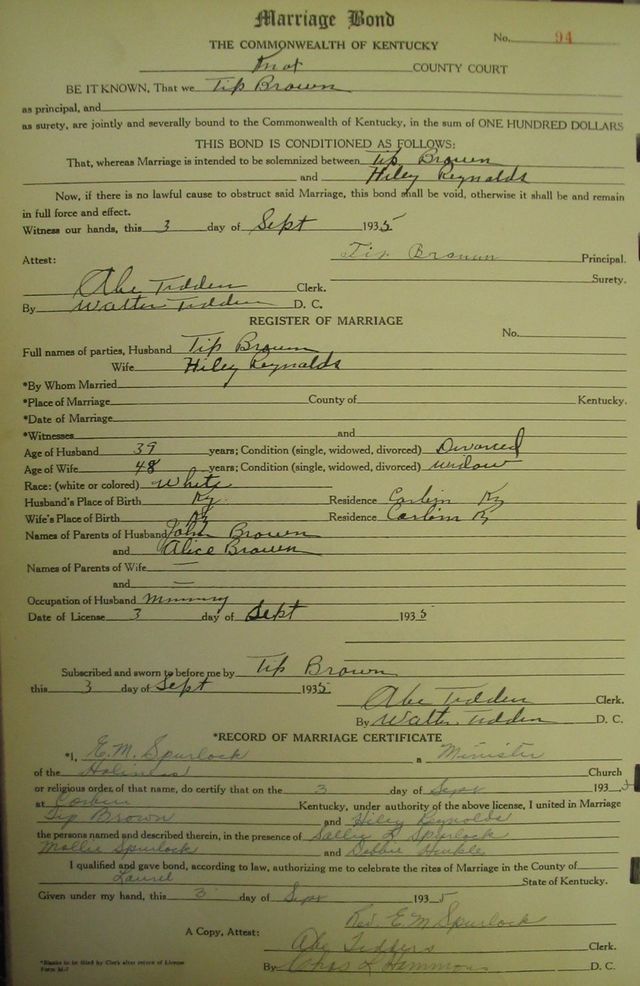 Marriage Bond
THE COMMONWEALTH OF KENTUCKY No. 94
Knox COUNTY COURT
BE IT KNOWN, That we Tip Brown
as principal, and
as surety, are jointly and severally bound to the Commonwealth of Kentucky, in the sum of ONE HUNDRED DOLLARS
THIS BOND IS CONDITIONED AS FOLLOWS:
That, whereas Marriage is intended to be solemnized between Tip Brown
and Hiley Reynolds
Now, if there is no lawful cause to obstruct said Marriage, this bond shall be void, otherwise it shall be and remain
in full force and effect.
Witness our hands, this 3 day of Sept 1935
Attest: Tip Brown Principal.
Surety.
Abe Tedders Clerk.
By Walter Tedders D. C.
REGISTER OF MARRIAGE
No.
Full names of parties, Husband Tip Brown
Wife Hiley Reynolds
*By Whom Married
*Place of Marriage County of Kentucky.
*Date of Marriage
*Witnesses and
Age of Husband 39 years; Condition (single, widowed, divorced) Divorced
Age of Wife 48 years; Condition (single, widowed, divorced) widow
Race: (white or colored) White
Husband's Place of Birth Ky. Residence Corbin Ky
Wife's Place of Birth Ky Residence Corbin Ky
Names of Parents of Husband John Brown
and Alice Brown
Names of Parents of Wife —
and —
Occupation of Husband
Date of License 3 day of Sept 1935
Subscribed and sworn to before me by Tip Brown
this 3 day of Sept 1935
Abe Tedders Clerk.
By Walter Tedders D. C.
*RECORD OF MARRIAGE CERTIFICATE
*I, E. M. Spurlock a Minister
of the Holiness Church
or religious order of that name, do certify that on the 3 day of Sept 1935
at Corbin Kentucky, under authority of the above license, I united in Marriage
Tip Brown and Hiley Reynolds
the persons named and described therein, in the presence of Sallie L Spurlock
Mollie Spurlock and Debbie Hinkle
I qualified and gave bond, according to law, authorizing me to celebrate the rites of Marriage in the County of
Laurel State of Kentucky.
Given under my hand, this 3 day of Sept 1935
Rev. E. M Spurlock
A Copy, Attest: Abe Tedders Clerk.
By Chas L Hammons D. C.
*Blanks to be filed by Clerk after return of License
Form M-7